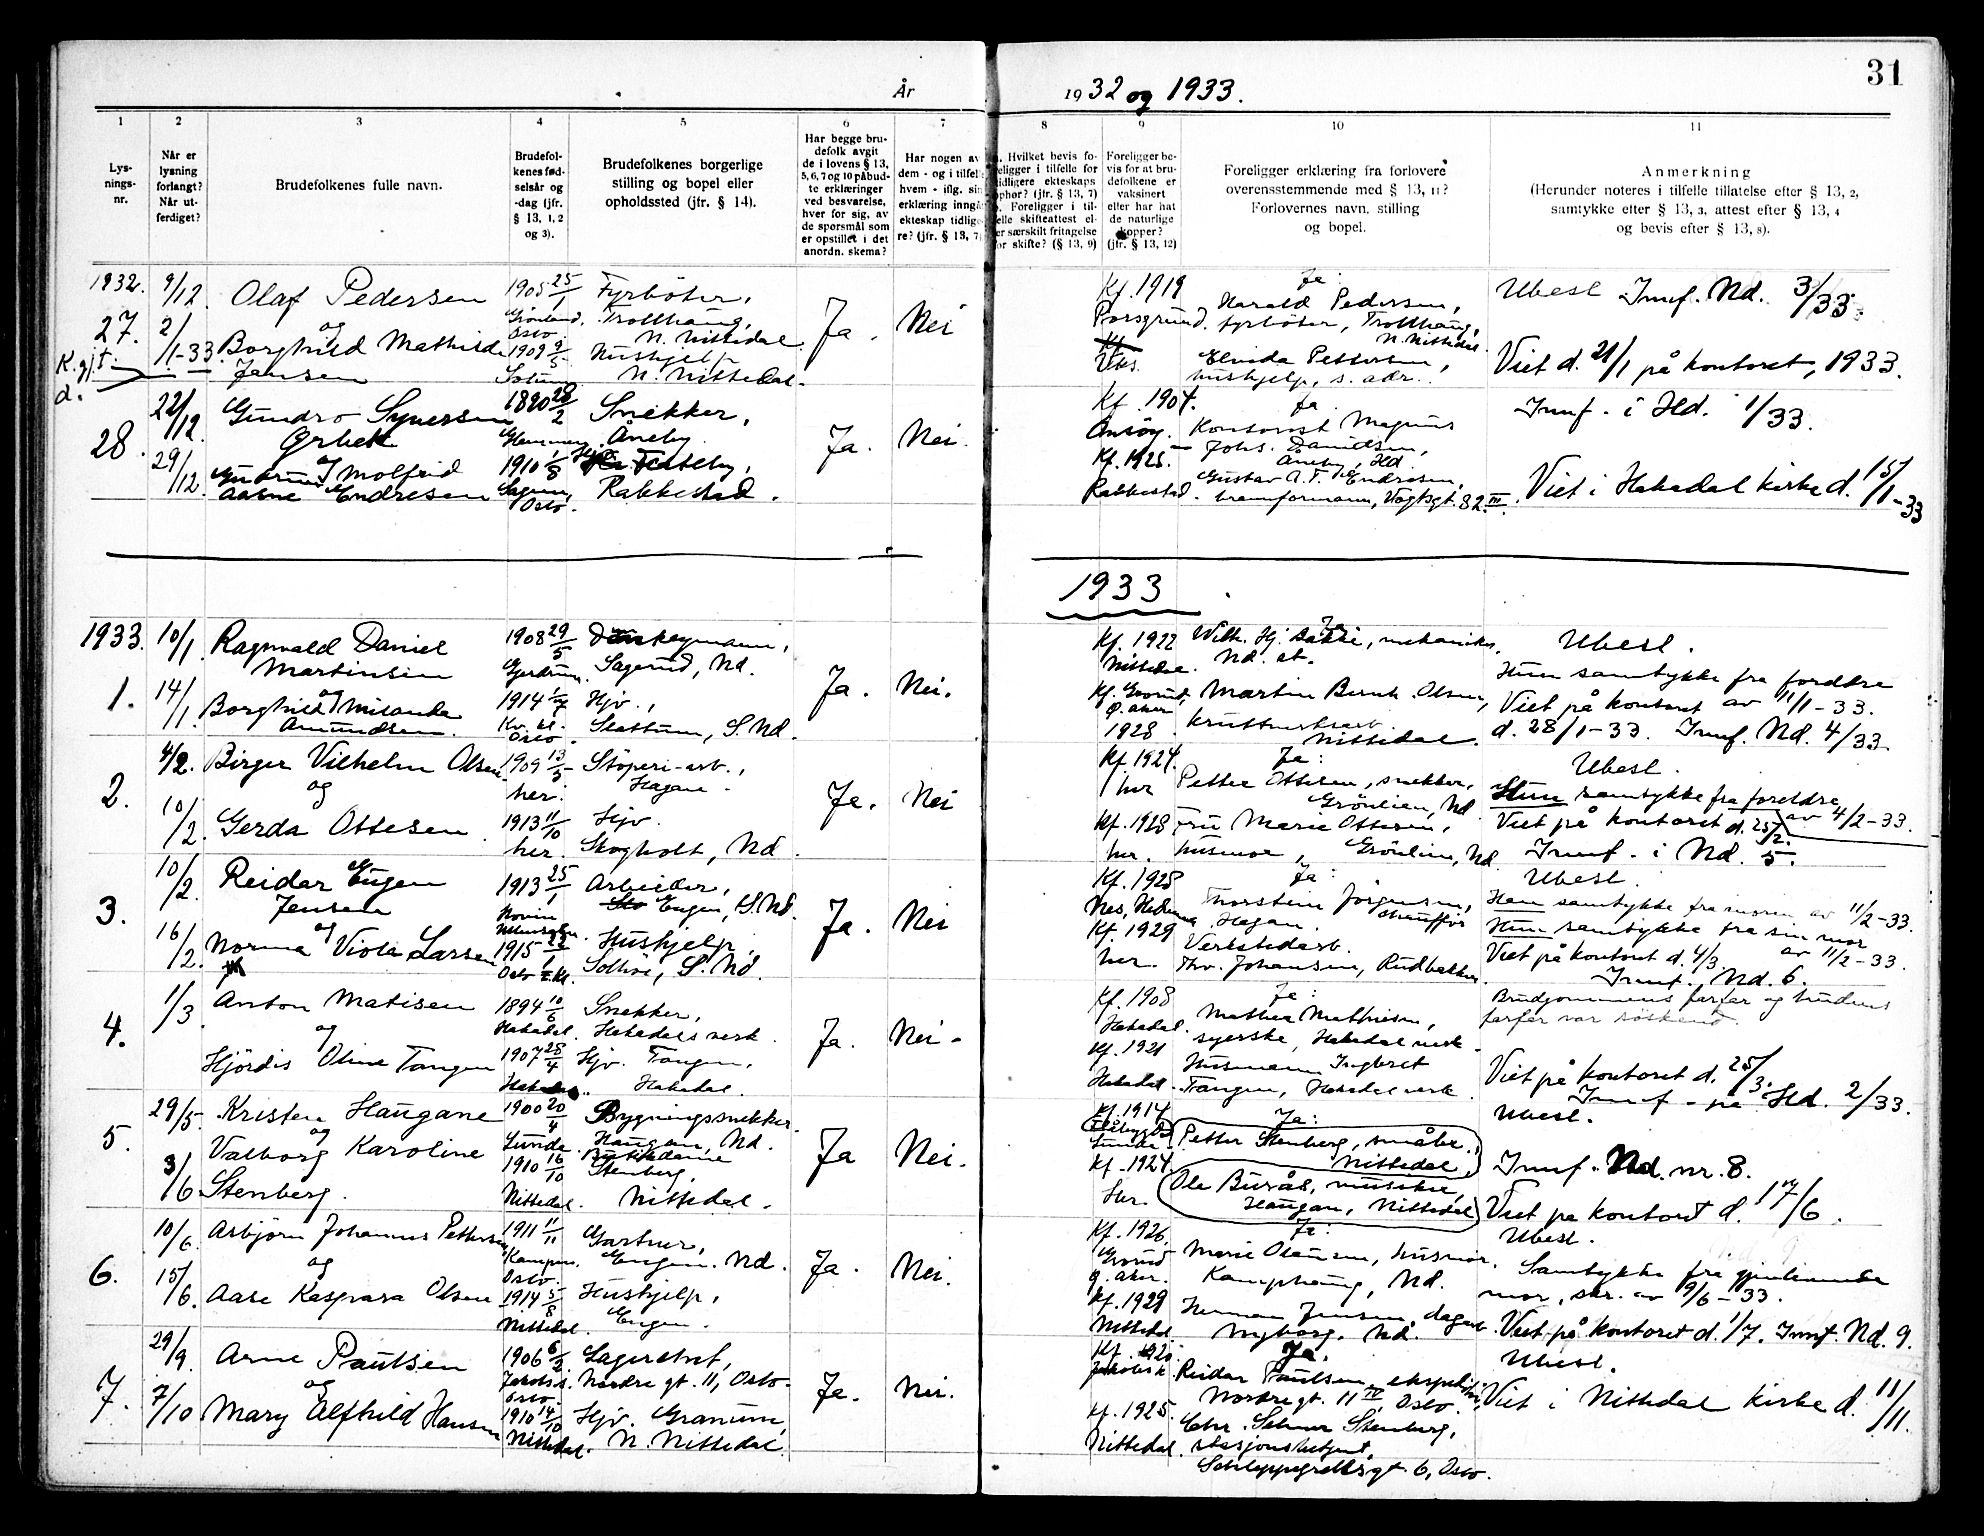 31
År 1932 og 1933.
1 2 3 4 5 6 7 8 9 10 11
Lys-
nings-
nr.
Når er
lysning
forlangt?
Når ut-
ferdiget?
Brudefolkenes fulle navn.
Brudefol-
kenes fød-
selsår og
-dag (jfr.
§ 13, 1, 2
og 3).
Brudefolkenes borgerlige
stilling og bopel eller
opholdssted (jfr. § 14).
Har begge bru-
defolk avgit
de i lovens § 13,
5, 6, 7 og 10 påbud-
te erklæringer
ved besvarelse,
hver for sig, av
de spørsmål som
er opstillet i det
anordn. skema?
Har nogen av
dem - og i tilfel
hvem - iflg. sin
erklæring inngå
ekteskap tidlige
re? (jfr. § 13, 7)
Hvilket bevis fo-
religger i tilfelle for
tidligere ekteskaps
ophør? (jfr. § 13, 7)
Foreligger i til-
felle skifteattest el-
er særskilt fritagelse
for skifte? (§ 13, 9)
Foreligger be-
vis for at bru-
defolkene er
vaksinert
eller har hat
de naturlige
kopper?
(jfr. § 13, 12)
Foreligger erklæring fra forlovere
overensstemmende med § 13, 11?
Forlovernes navn, stilling
og bopel.
Anmerkning
(Herunder noteres i tilfelle tillatelse efter § 13, 2,
samtykke efter § 13, 3, attest efter § 13, 4
og bevis efter § 13, 8).
1932.
27.
K. gjt.
d.
9/12.
2/1-33.
Olaf Pedersen
og
Borghild Mathilde
Jensen
1905 25/1
Grønland,
Oslo
1909 9/5
Fyrböter,
Trollhaug,
N. Nittedal.
Hushjelp
N. Nittedal.
Ja.
Nei
Kf. 1919
Porsgrund.
Vks.
Ja:
Harald Pedersen,
fyrböter, Trollhaug,
N. Nittedal.
Elvida Pettersen,
hushjelp, s. adr..
Ubesl. Innf. Nd. 3/33.
Viet d. 21/1 på kontoret, 1933.
28.
22/12.
29/12.
Gundro Syversen
Ørbek
og
Gudrun Molfrid
Aasne Endresen
1890 28/2
1910 1/8
Sagene,
Oslo.
Snekker,
Åneby.
Rakkestad.
Ja.
Nei.
Kf. 1904.
Kf. 1925.
Rakkestad.
Ja.
Kontorist Magnus
Johs. Danielsen,
Åneby, Hd.
Gustav A. F. Endresen,
tramformann, Vogtsgt. 82 III.
Innf. i Hd. 1/33.
Viet i Hakadal kirke d. 15/1-33
1933
1933.
1.
10/1.
14/1.
Ragnvald Daniel
Martinsen
og
Borghild Milanda
Amundsen.
1908 29/5
Gjerdrum.
1914 1/7
Kv. kl.
Oslo.
Donkeymann,
Sagerud, Nd.
Hjv.,
Slattum, S. Nd.
Ja.
Nei.
Kf. 1922
Nittedal.
Kf. Grorud,
Ø. Aker
1928
Ja:
Wilh. Hj. Bakke, mekaniker,
Nd. st.
Martin Bernh. Olsen,
kruttverksarb.
Nittedal.
Ubesl.
Hun samtykke fra foreldre
Viet på kontoret av 11/1-33.
d. 28/1-33. Innf. Nd. 4/33.
2.
4/2.
10/2.
Birger Vilhelm Olsen
og
Gerda Ottesen
1909 13/5
her.
1913 11/10
her.
Stöperi-arb.,
Hagan.
Hjv.
Skogholt, Nd.
Ja.
Nei
Kf. 1924.
her
Kf. 1928
her.
Ja:
Petter Ottesen, snekker,
Grönlien, Nd.
Fru Marie Ottesen,
husmor, Grönlien, Nd
Ubesl.
Hun samtykke fra foreldre
av 4/2-33.
Viet på kontoret d. 25/2.
Innf. i Nd. 5.
3.
10/2
16/2.
Reidar Eugen
Jensen
og
Norma Viola Larsen
1913 25/1
1915 22/1
Arbeider,
Engen, S. Nd.
Hushjelp,
Solhöi, S. Nd.
Ja.
Nei
Kf. 1928
Nes, Hedmark
Kf. 1929
her.
Ja:
Thorstein Jörgensen,
Hagan. chauffør
Verkstedarb.
Thv. Johansen, Rudbakken.
Ubesl.
Han samtykke fra moren av 11/2-33.
Hun samtykke fra sin mor
av 11/2-33.
Viet på kontoret d. 4/3.
Innf. Nd. 6.
4.
1/3
Anton Matisen
og
Hjördis Oline Tangen
1894 10/6
Hakadal.
1907 28/4
Hakadal.
Snekker,
Hakadals verk.
Hjv. Tangen,
Hakadal.
Ja.
Nei.
Kf. 1908
Hakadal.
Kf. 1921
Hakadal.
Ja:
Mathea Mathisen,
syerske, Hakadal verk.
Husmann Ingbret
Tangen, Hakadal verk.
Brudgommens farfar og brudens
farfar var söskend.
Viet på kontoret d. 25/3.
Innf. på Hd. 2/33.
5.
29/5.
3/6
Kristen Haugane
og
Valborg Karoline
Stenberg.
1900 20/4
Lunde
1910 16/10
Nittedal.
Bygningssnekker.
Haugan, Nd.
Butikkdame
Stenberg,
Nittedal.
Ja
Nei.
Kf. 1914
Lunde.
Kf. 1924.
Her.
Ja:
Petter Stenberg, småbr.
Nittedal.
Ole Burås, musiker,
Haugan, Nittedal
Ubesl.
Innf. Nd. nr. 8.
Viet på kontoret d. 17/6.
6.
10/6.
15/6.
Asbjörn Johannes Pettersen
og
Aase Kaspara Olsen
1911 11/11
Kampen,
Oslo.
1914 5/8
Nittedal.
Gartner,
Engen. Nd.
Hushjelp,
Engen.
Ja.
Nei.
Kf. 1926,
Grorud
Ø. Aker.
Kf. 1929
Nittedal.
Ja:
Marie Olausen, husmor,
Kamphaug, Nd.
Herman Jensen, dagarb.
Nyborg, Nd.
Ubesl.
Samtykke fra gjenlevende
mor, skr. av 9/6-33.
Viet på kontoret d. 1/7. Innf. Nd. 9.
7.
29/9.
7/10
Arne Paulsen
og
Mary Alfhild Hansen
1906 6/2
Jakobs k.
Oslo
1910 14/10
Nittedal.
Lagerchef,
Nordre gt. 11, Oslo.
Hjv. Granum,
N. Nittedal.
Ja.
Nei.
Kf. 1920
Jakobs k
Kf. 1925.
Nittedal.
Ja.
Reidar Paulsen, ekspeditör,
Nordregt. 11 IV, Oslo.
Chr. Selmer Stenberg,
stasjonsbetjent,
Schleppegrellsgt. 6, Oslo.
Ubesl.
Viet i Nittedal kirke d. 11/11.